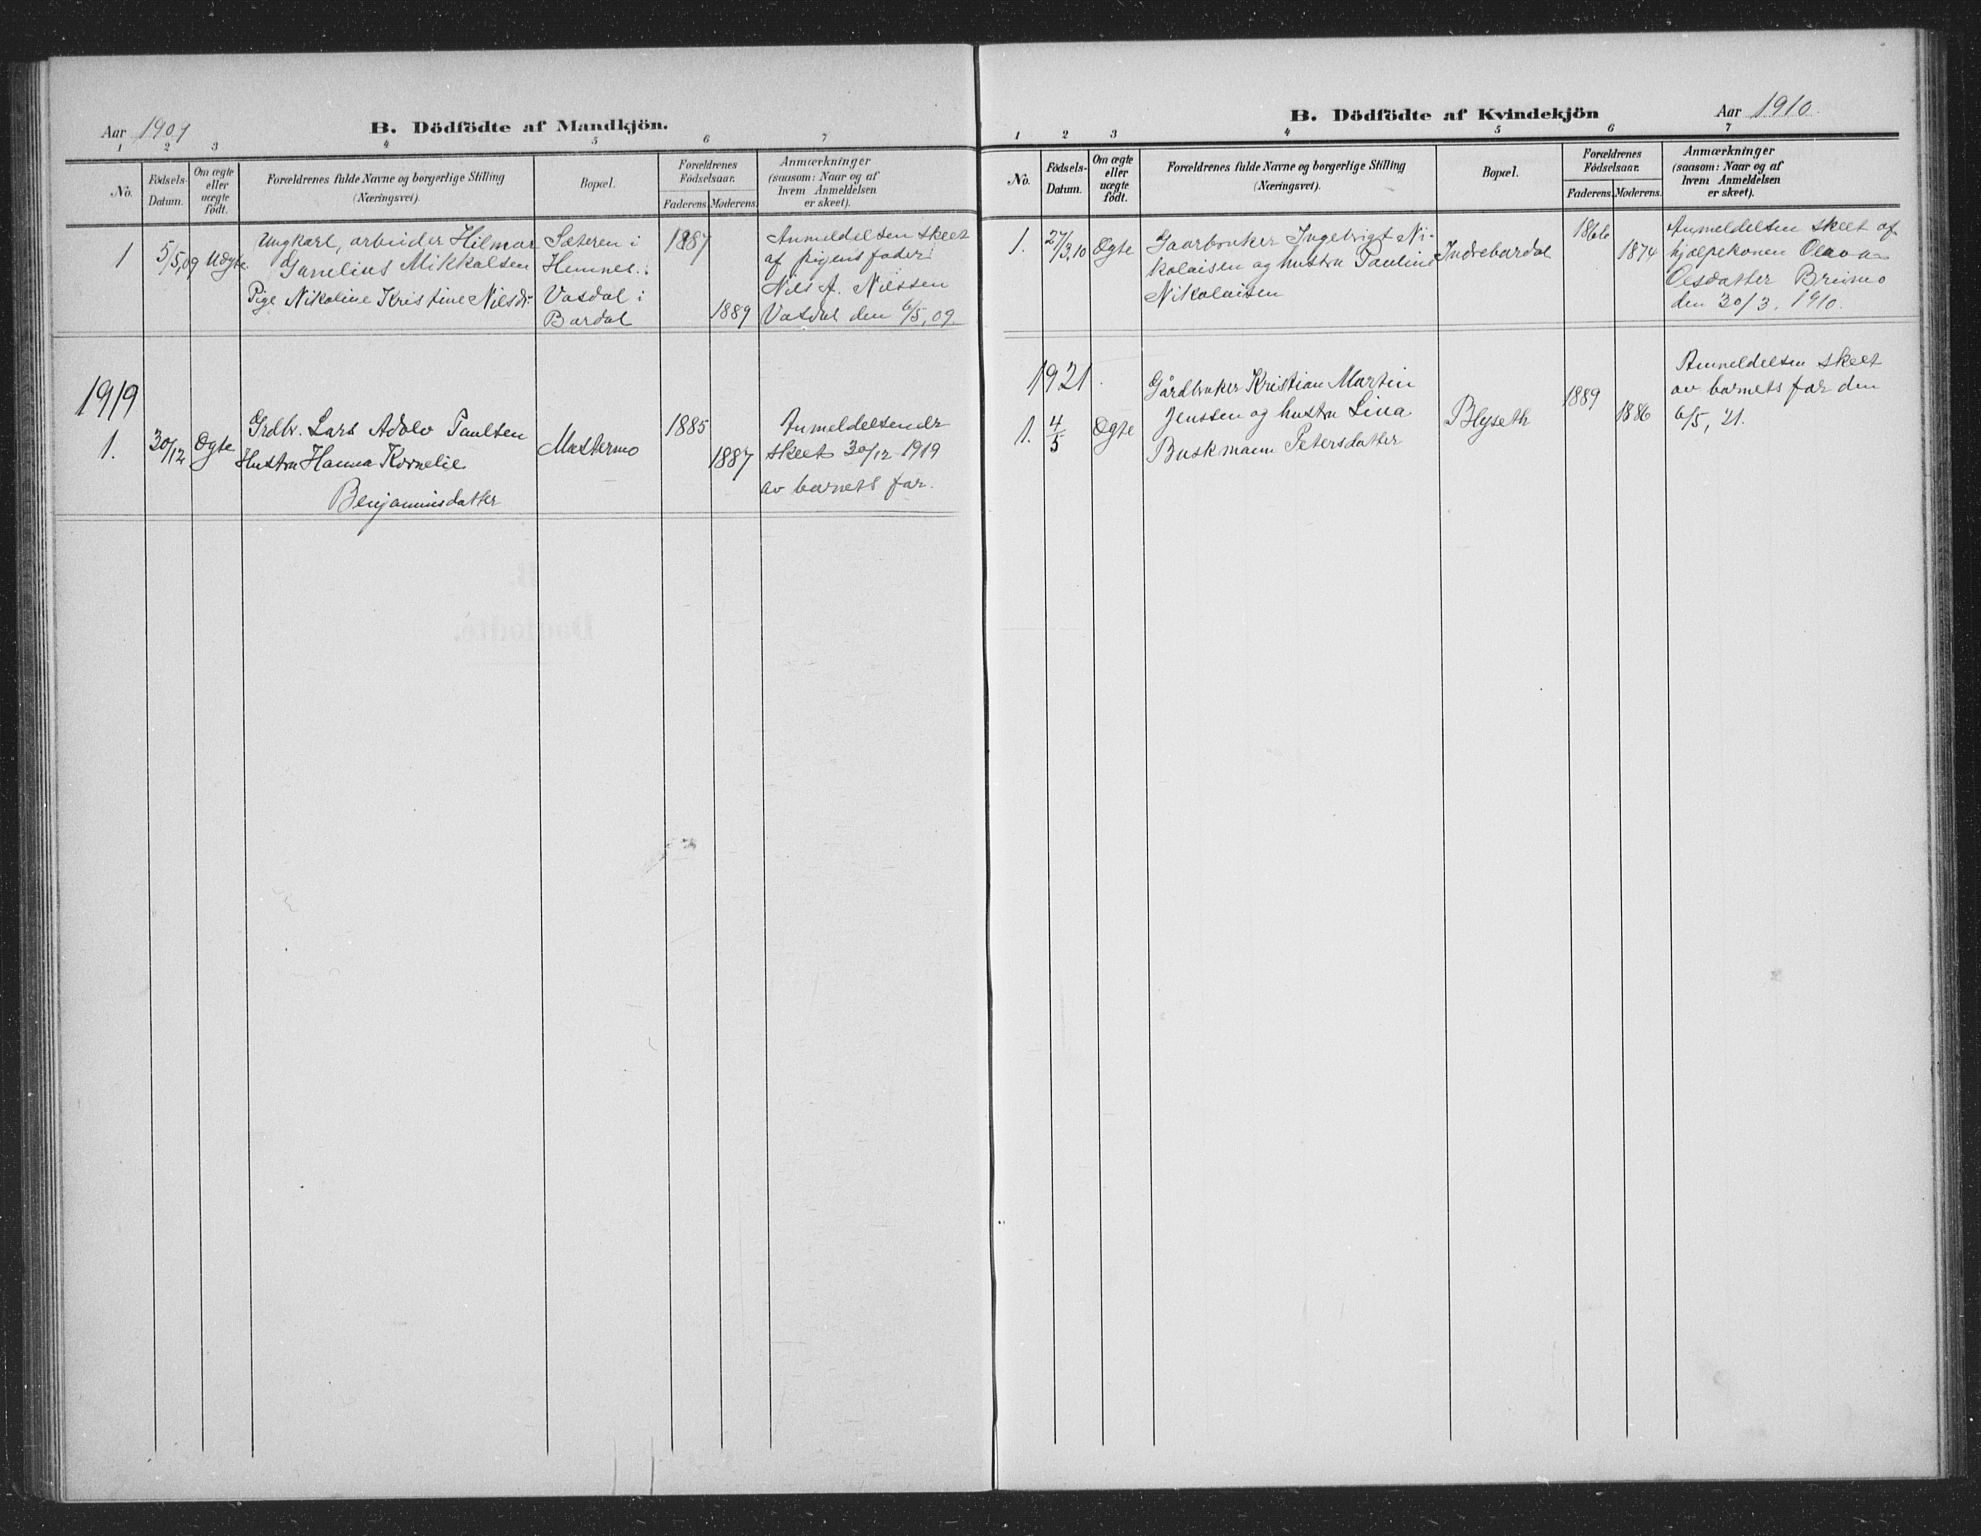 Aar 1909
B. Dödfödte af Mandkjön.
1 2 3 4 5 6 7
No.
Födsels-
Datum.
Om ægte
eller
uægte
födt.
Forældrenes fulde Navne og borgerlige Stilling
(Næringsvei).
Bopæl.
Forældrenes
Födselsaar.
Faderens. Moderens.
Anmærkninger
(saasom: Naar og af
hvem Anmeldelsen
er skeet).
1
5/5,09
Uægte
Ungkarl, arbeider Hilmar
Mikkalsen
Pige Nikoline Kristine Nilsdr
Sæteren i
Hemnes.
Vasdal i
Bardal
1887
1889
Anmeldelsen skeet
af pigens fader
Nils A. Nilssen
Vasdal den 6/5, 09
1919
1.
30/12
Ægte
Grdbr. Lars Adolv Paulsen
Hustru Hanna Kornelie
Benjaminsdatter
Mastermo
1885
1887
Anmeldelsen er
skeet 30/12 1919
av barnets far.
B. Dödfödte af Kvindekjön
Aar 1910.
1 2 3 4 5 6 7
No.
Födsels-
Datum.
Om ægte
eller
uægte
födt.
Forældrenes fulde Navne og borgerlige Stilling
(Næringsvei).
Bopæl.
Forældrenes
Födselsaar.
Faderens. Moderens.
Anmærkninger
(saasom: Naar og af
hvem Anmeldelsen
er skeet).
1.
27/3,10
Ægte
Gaarbruker Ingebrigt Ni-
kolaisen og hustru Pauline
Nikolaisen
Indrebardal
1866
1874
Anmeldelsen skeet af
hjælpekonen Olava
Olsdatter Brumo
den 30/3. 1910.
1921.
1.
4/5
Ægte
Gårdbruker Kristian Martin
Jenssen og hustru Lina
Buskmann Petersdatter
Blyseth
1889
1886
Anmeldelsen skeet
av barnets far den
6/5, 21.